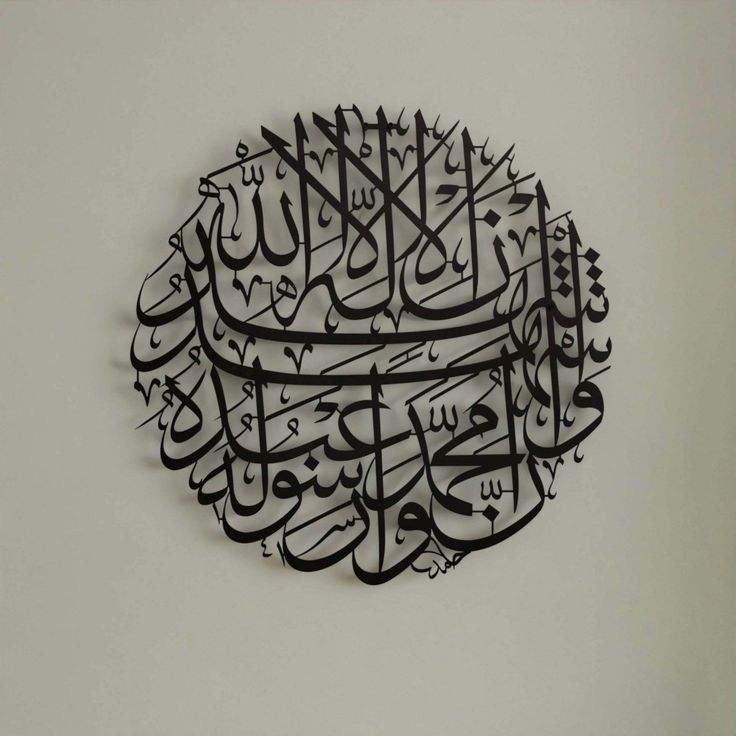 أشهد أن لا إله إلا الله
وأشهد أن محمدا عبده ورسوله